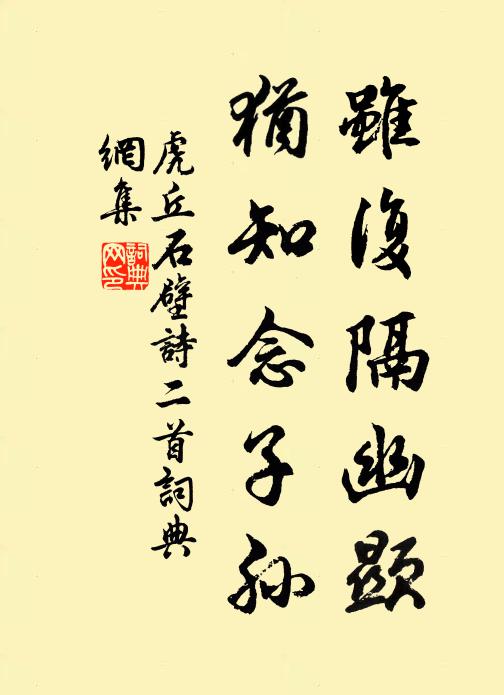 雖復隔幽顯
猶知念子孫
虎丘石壁詩二首詞典
網集
詞典
网印